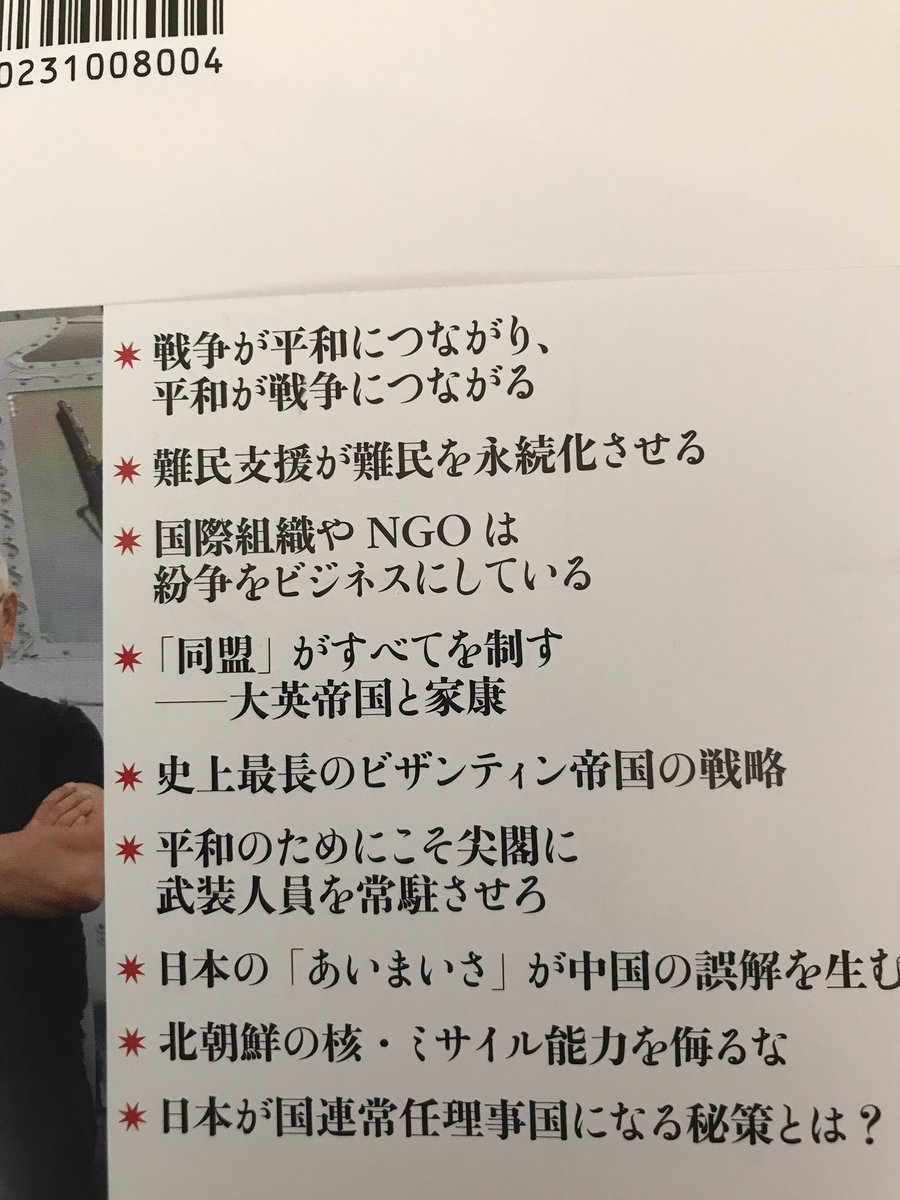 0231008004
✷ 戦争が平和につながり、
平和が戦争につながる
✷ 難民支援が難民を永続化させる
✷ 国際組織や NGO は
紛争をビジネスにしている
✷ 「同盟」がすべてを制す
——大英帝国と家康
✷ 史上最長のビザンティン帝国の戦略
✷ 平和のためにこそ尖閣に
武装人員を常駐させろ
✷ 日本の「あいまいさ」が中国の誤解を生む
✷ 北朝鮮の核・ミサイル能力を侮るな
✷ 日本が国連常任理事国になる秘策とは？